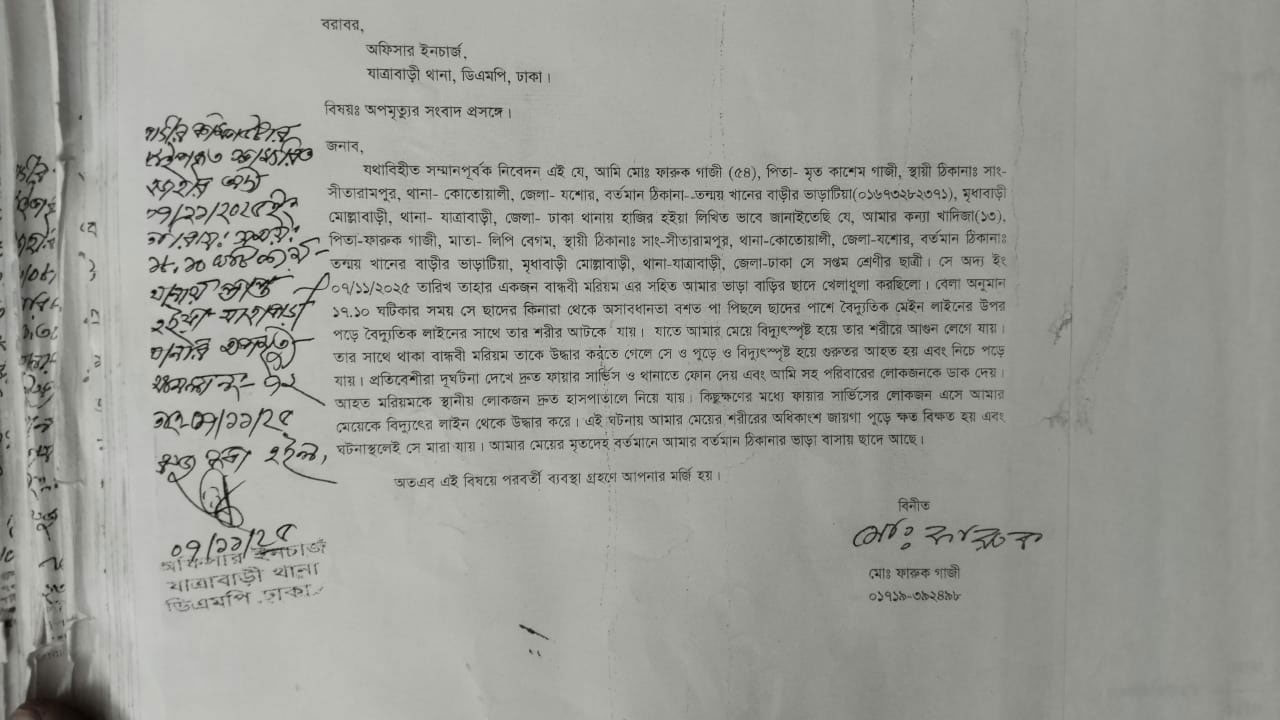 বরাবর,
অফিসার ইনচার্জ,
যাত্রাবাড়ী থানা, ডিএমপি, ঢাকা।
বিষয়ঃ অপমৃত্যুর সংবাদ প্রসঙ্গে।
জনাব,
যথাবিহীত সম্মানপূর্বক নিবেদন এই যে, আমি মোঃ ফারুক গাজী (৫৪), পিতা- মৃত কাশেম গাজী, স্থায়ী ঠিকানাঃ সাং-
সীতারামপুর, থানা- কোতোয়ালী, জেলা- যশোর, বর্তমান ঠিকানা--তন্ময় খানের বাড়ীর ভাড়াটিয়া(০১৬৭৩২৮২৩৭১), মৃধাবাড়ী
মোল্লাবাড়ী, থানা- যাত্রাবাড়ী, জেলা- ঢাকা থানায় হাজির হইয়া লিখিত ভাবে জানাইতেছি যে, আমার কন্যা খাদিজা(১৩),
পিতা-ফারুক গাজী, মাতা- লিপি বেগম, স্থায়ী ঠিকানাঃ সাং-সীতারামপুর, থানা-কোতোয়ালী, জেলা-যশোর, বর্তমান ঠিকানাঃ
তন্ময় খানের বাড়ীর ভাড়াটিয়া, মৃধাবাড়ী মোল্লাবাড়ী, থানা-যাত্রাবাড়ী, জেলা-ঢাকা সে সপ্তম শ্রেণীর ছাত্রী। সে অদ্য ইং
০৭/১১/২০২৫ তারিখ তাহার একজন বান্ধবী মরিয়ম এর সহিত আমার ভাড়া বাড়ির ছাদে খেলাধুলা করছিলো। বেলা অনুমান
১৭.১০ ঘটিকার সময় সে ছাদের কিনারা থেকে অসাবধানতা বশত পা পিছলে ছাদের পাশে বৈদ্যুতিক মেইন লাইনের উপর
পড়ে বৈদ্যুতিক লাইনের সাথে তার শরীর আটকে যায়। যাতে আমার মেয়ে বিদ্যুৎস্পৃষ্ট হয়ে তার শরীরে আগুন লেগে যায়।
তার সাথে থাকা বান্ধবী মরিয়ম তাকে উদ্ধার করতে গেলে সে ও পুড়ে ও বিদ্যুৎস্পৃষ্ট হয়ে গুরুতর আহত হয় এবং নিচে পড়ে
যায়। প্রতিবেশীরা দূর্ঘটনা দেখে দ্রুত ফায়ার সার্ভিস ও থানাতে ফোন দেয় এবং আমি সহ পরিবারের লোকজনকে ডাক দেয়।
আহত মরিয়মকে স্থানীয় লোকজন দ্রুত হাসপাতালে নিয়ে যায়। কিছুক্ষণের মধ্যে ফায়ার সার্ভিসের লোকজন এসে আমার
মেয়েকে বিদ্যুৎের লাইন থেকে উদ্ধার করে। এই ঘটনায় আমার মেয়ের শরীরের অধিকাংশ জায়গা পুড়ে ক্ষত বিক্ষত হয় এবং
ঘটনাস্থলেই সে মারা যায়। আমার মেয়ের মৃতদেহ বর্তমানে আমার বর্তমান ঠিকানার ভাড়া বাসায় ছাদে আছে।
অতএব এই বিষয়ে পরবর্তী ব্যবস্থা গ্রহণে আপনার মর্জি হয়।
বিনীত
মোঃ ফারুক
মোঃ ফারুক গাজী
০১৭১৯-৩৯২৪৯৮
০৭/১১/২০২৫
যাত্রাবাড়ী
থানার অপমৃত্যু
মামলা নং- ৭২
০৭/১১/২৫
হইল,
০৭/১১/২৫
অফিসার ইনচার্জ
যাত্রাবাড়ী থানা
ডিএমপি, ঢাকা